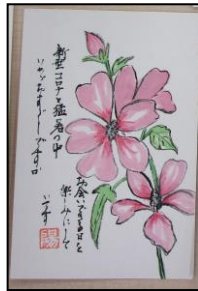 新型コロナと猛暑の中
いかがおすごしですか
お会いできる日を
楽しみにして
います